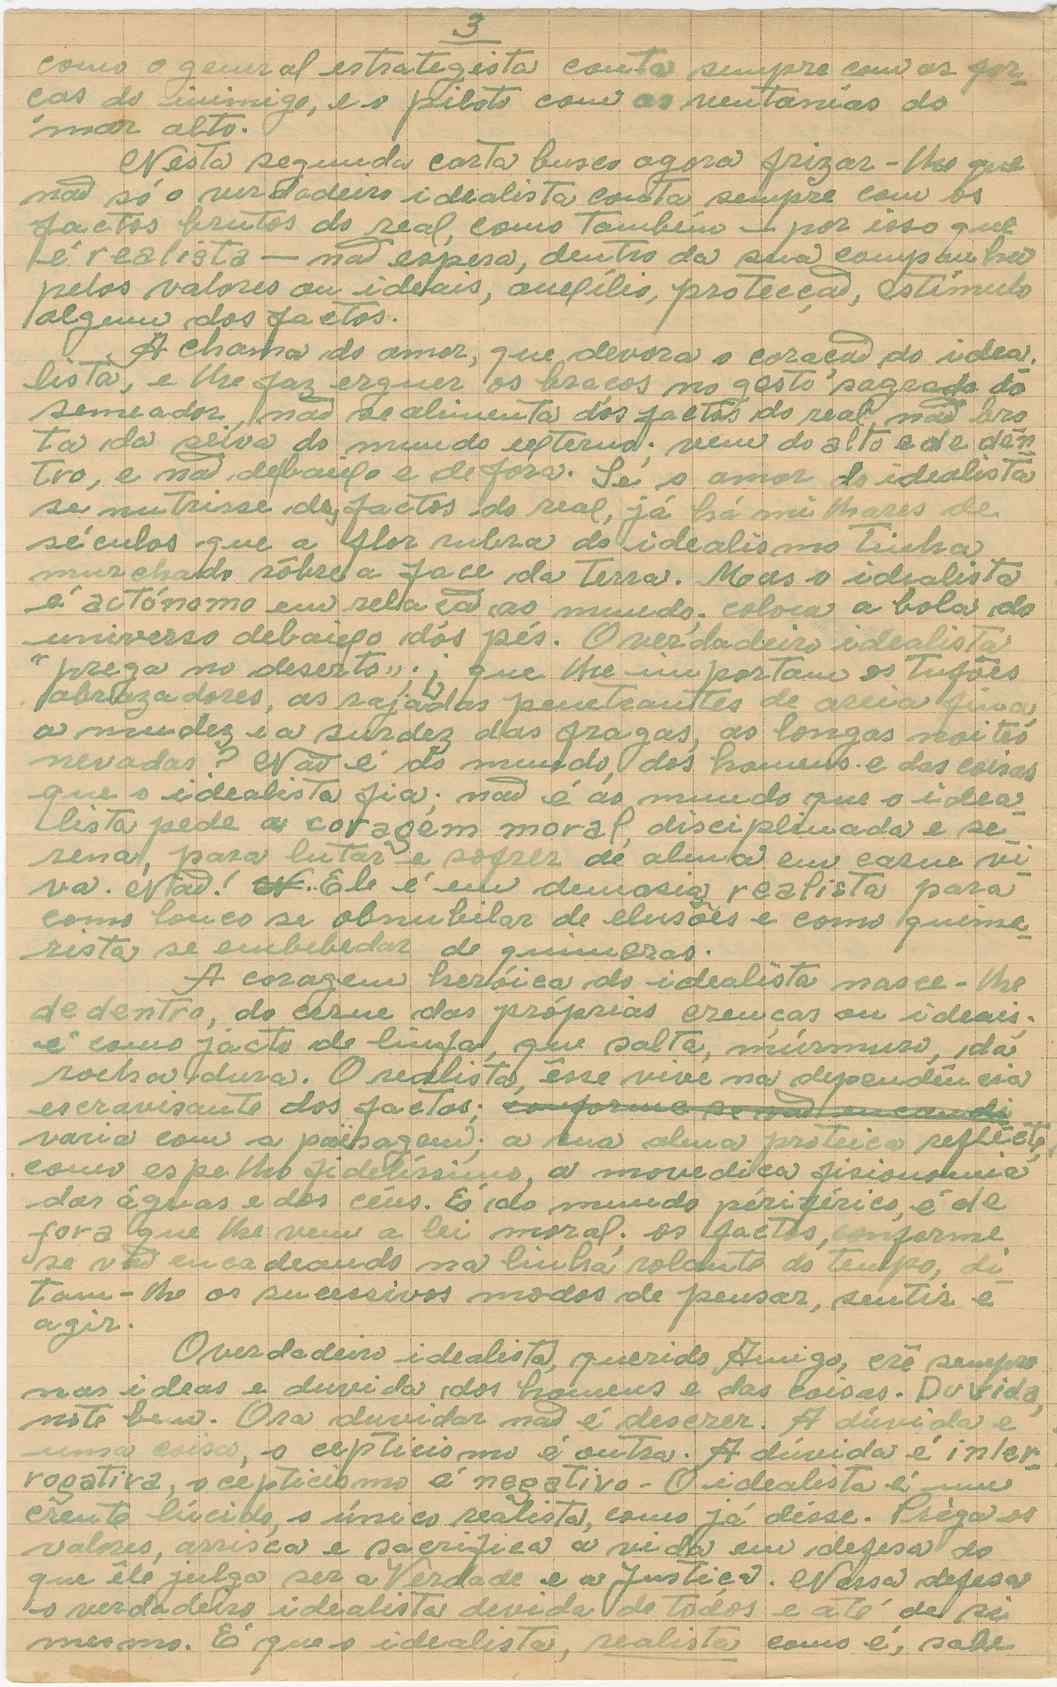 3
como o general estrategista conta sempre com as for-
ças do inimigo, e o piloto com as ventanias do
mar alto.
Nesta segunda carta busco agora frizar-lhe que
não só o verdadeiro idealista conta sempre com os
factos brutos do real, como também — por isso que
é realista — não espera, dentro da sua campanha
pelos valores ou ideais, auxílio, protecção, estímulo
algum dos factos.
A chama do amor, que devora o coração do idea-
lista, e lhe faz erguer os braços no gesto sagrado do
semeador, não se alimenta dos factos do real, não bro
ta da seiva do mundo externo; vem do alto e de dên
tro, e não debaixo e de fora. Se o amor do idealista
se nutrisse de factos do real, já há milhares de
séculos que a flor rubra do idealismo tinha
murchado sôbre a face da terra. Mas o idealista
é autónomo em relação ao mundo; coloca a bola do
universo debaixo dos pés. O verdadeiro idealista
"prega no deserto"; que lhe importam os tufões
abrazadores, as rajadas penetrantes de areia fina,
a mudez e a surdez das fragas, as longas noites
nevadas? Não é do mundo, dos homens e das coisas
que o idealista fia; não é ao mundo que o idea-
lista pede a coragem moral, disciplinada e se-
rena, para lutar e sofrer de alma em carne vi-
va. Não! Ele é em demasia realista para
como louco se obnubilar de elusões e como quime-
rista se embebedar de quimeras.
A coragem heróica do idealista nasce-lhe
de dentro, do cerne das próprias crenças ou ideais;
é como jacto de linfa, que salta, múrmuro, da
rocha dura. O realista, êsse vive na dependência
escravisante dos factos; conforme se vão encandi
varia com a païsagem; a sua alma proteica reflecte,
como espelho fidelíssimo, a movediça fisionomia
das águas e dos céus. É do mundo périférico, é de
fora que lhe vem a lei moral; os factos, conforme
se vão encadeando na linha rolante do tempo, di
tam-lhe os sucessivos modos de pensar, sentir e
agir.
O verdadeiro idealista, querido Amigo, crê sempre
nas ideas e duvida dos homens e das coisas. Duvida,
note bem. Ora duvidar não é descrer. A dúvida e
uma coisa, o cepticismo é outra. A duvida é inter-
rogativa, o cepticismo é negativo - O idealista é um
crente lúcido, o único realista, como já disse. Prèga os
valores, arrisca e sacrifica a vida em defesa do
que êle julga ser a Verdade e a Justiça. Nessa defesa
o verdadeiro idealista devida de todos e até de si
mesmo. É que o idealista, realista como é, sabe